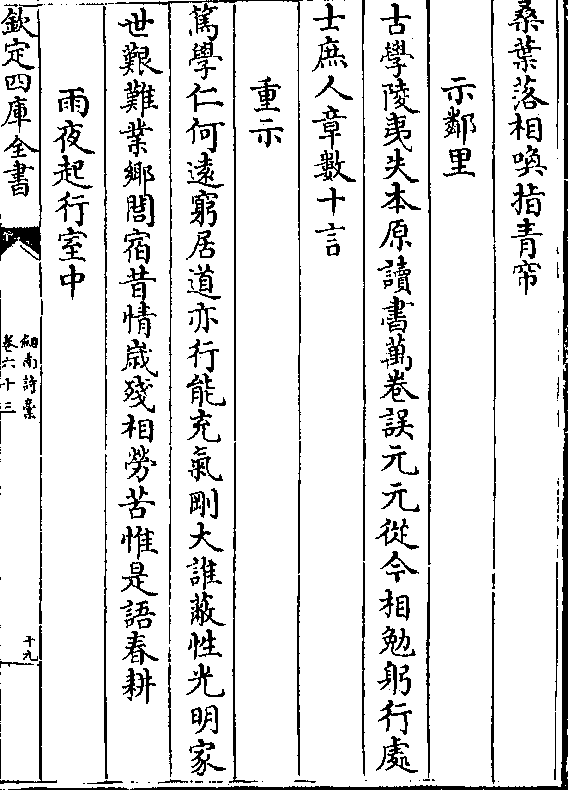 桑葉落相喚指青帘
示鄰里
古學陵夷失本原讀書萬卷誤元元從今相勉躬行處
士庶人章數十言
重示
篤學仁何遠窮居道亦行能充氣剛大誰蔽性光明家
世艱難業鄉閭宿昔情歳殘相勞苦惟是語春耕
雨夜起行室中
欽定四庫全書
劔南詩稾
卷六十三
十九